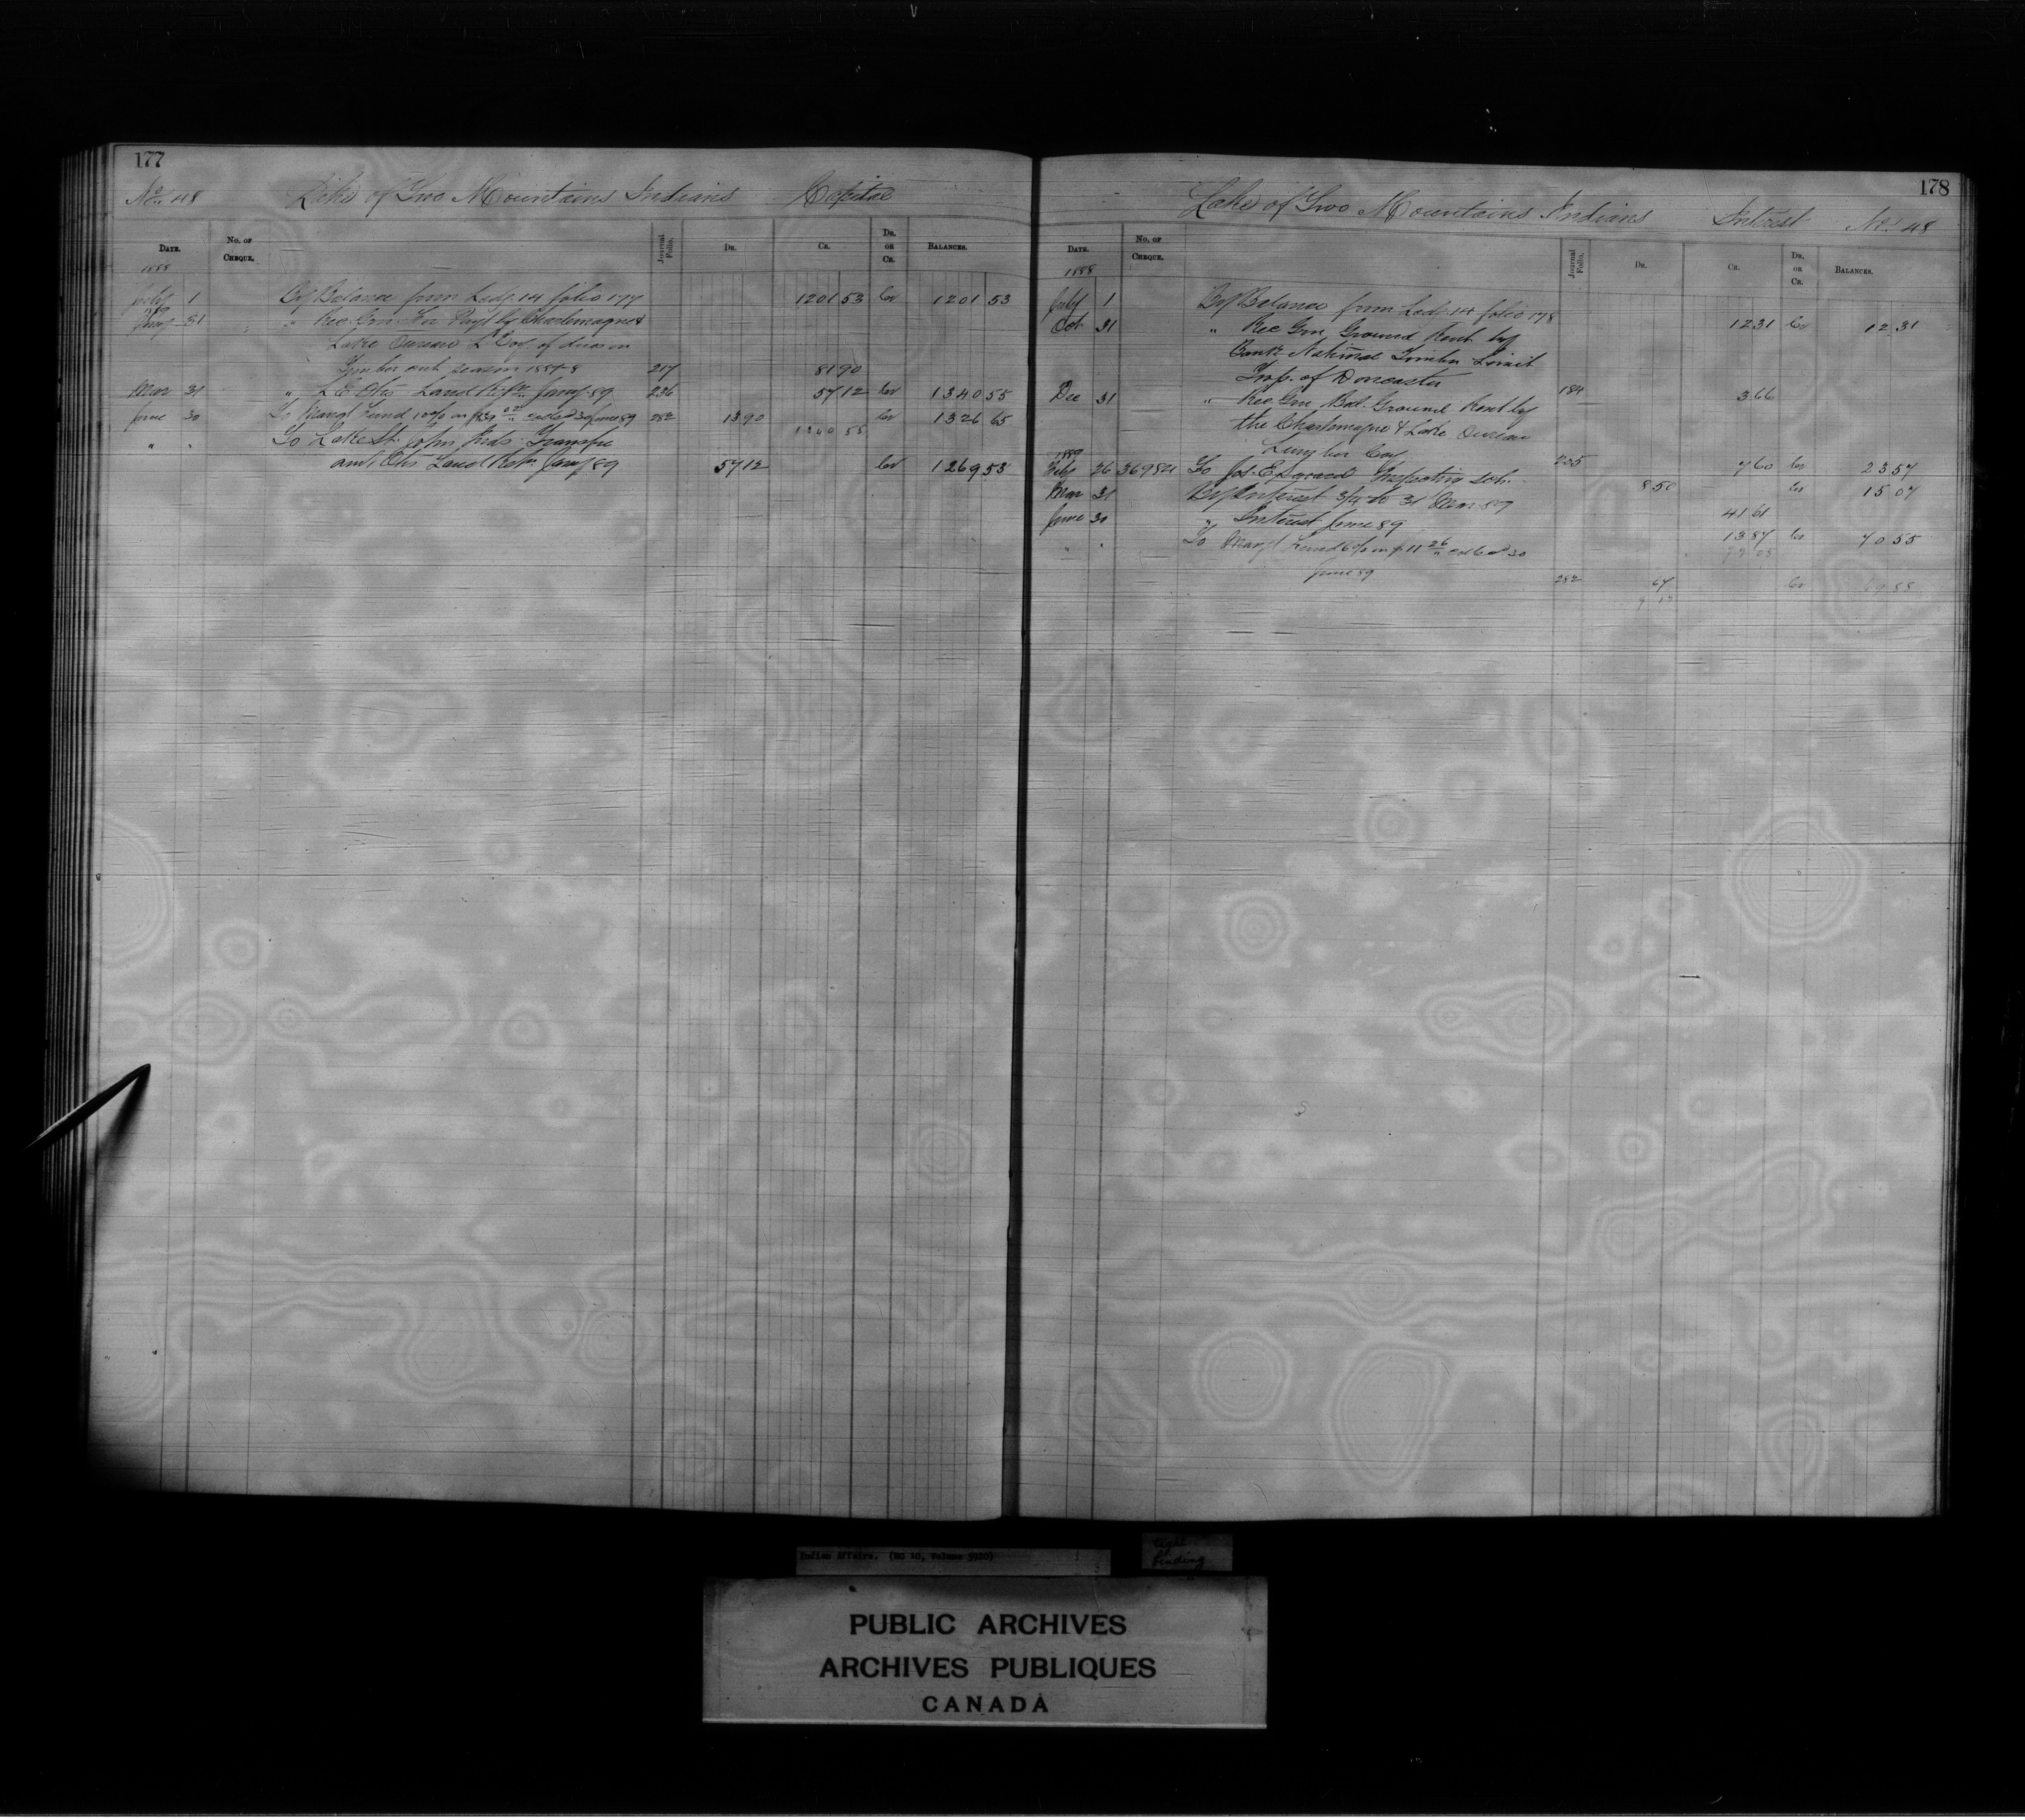 177
No. 48 Lake of Two Mountains Indians Capital
DATE. NO. OF CHEQUE. Journal Folio. DR. CR. DR. OR CR. BALANCES.
1888
July 1 By Balance from Ledr. 14 folio 177 1201 53 Cr 1201 53
89
Jany 31 " Rec Gen for Payt by Charlemagne &
Lake Oureau L Coy. of dues on
Timber cut season 1887-8 217 81 90
Mar 31 " L E Otis Land Retn. Jany 89 236 57 12 Cr 1340 55
June 30 To Mangt Fund 10% on $139 02 coll'd 30 June 89 282 13 90 Cr 1326 65
1340 55
" " To Lake St. John Inds. Transfer
amt. Otis Land Retn Jany 89 57 12 Cr 1269 53
178
Lake of Two Mountains Indians Interest No. 48
DATE. NO. OF CHEQUE. Journal Folio. DR. CR. DR. OR CR. BALANCES.
1888
July 1 By Balance from Ledr. 14 folio 178 12 31 Cr 12 31
Oct 31 " Rec Gen Ground Rent by
Bank National Timber Limit
Twp. of Doncaster 184 3 66
Dec 31 " Rec Gen Bal. Ground Rent by
the Charlemagne & Lake Oureau
Lumber Coy 205 7 60 Cr 23 57
1889
Feby 26 369821 To Jos. E. Inspecting sch. 8 50 Cr 15 07
Mar 31 By Interest 3/4 to 31 Mar 89 41 61
June 30 " Interest June 89 13 87 Cr 70 55
79 05
" " To Mangt Fund 6% on $11 26 coll'd 30
June 89 282 67 Cr 69 88
9 17
Indian Affairs. (RG 10, Volume 5920)
tight
binding
PUBLIC ARCHIVES
ARCHIVES PUBLIQUES
CANADA